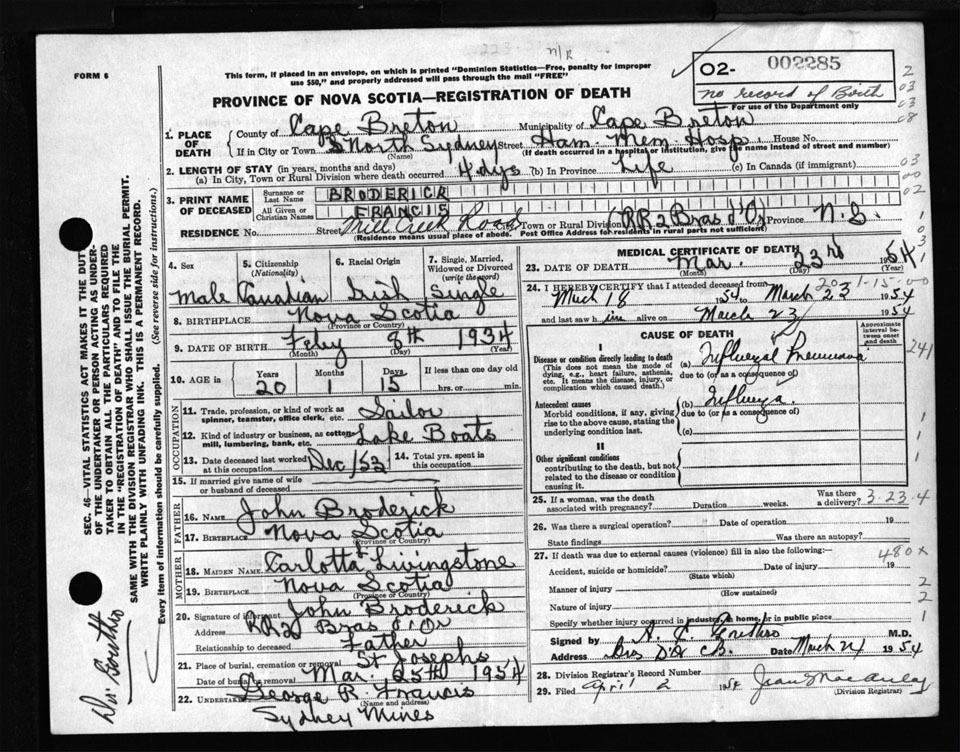 FORM 6
This form, if placed in an envelope, on which is printed "Dominion Statistics—Free, penalty for improper
use $50," and properly addressed will pass through the mail "FREE"
PROVINCE OF NOVA SCOTIA—REGISTRATION OF DEATH
O2- 002285
no record of Birth
For use of the Department only
1. PLACE OF DEATH
County of Cape Breton Municipality of Cape Breton
If in City or Town North Sydney Street Ham. Mem. Hosp. House No.
(Name) (If death occurred in a hospital or institution, give the name instead of street and number)
2. LENGTH OF STAY (in years, months and days)
(a) In City, Town or Rural Division where death occurred 4 dys (b) In Province Life (c) In Canada (if immigrant)
3. PRINT NAME OF DECEASED
Surname or Last Name BRODERICK
All Given or Christian Names FRANCIS
RESIDENCE No. Mill Creek Road City Town or Rural Division (RR2 Bras d'Or) Province N.S.
(Residence means usual place of abode. Post Office Address for residents in rural parts not sufficient)
4. Sex
Male
5. Citizenship (Nationality)
Canadian
6. Racial Origin
Irish
7. Single, Married, Widowed or Divorced (write the word)
Single
8. BIRTHPLACE Nova Scotia
(Province or Country)
9. DATE OF BIRTH Feby 8th 1934
(Month) (Day) (Year)
10. AGE in Years Months Days If less than one day old
20 1 15 hrs. or min.
OCCUPATION
11. Trade, profession, or kind of work as spinner, teamster, office clerk, etc. Sailor
12. Kind of industry or business, as cotton mill, lumbering, bank, etc. Lake Boats
13. Date deceased last worked at this occupation Dec/53
14. Total yrs. spent in this occupation
15. If married give name of wife or husband of deceased
FATHER
16. Name John Broderick
17. Birthplace Nova Scotia
(Province or Country)
MOTHER
18. Maiden Name Carlotta Livingstone
19. Birthplace Nova Scotia
(Province or Country)
20. Signature of informant John Broderick
Address RR2 Bras d'Or
Relationship to deceased Father
21. Place of burial, cremation or removal St Josephs
Date of burial or removal Mar. 25th 1954
22. Undertaker George R. Francis
(Name and address)
Sydney Mines
MEDICAL CERTIFICATE OF DEATH
23. DATE OF DEATH Mar. 23rd 1954
(Month) (Day) (Year)
24. I HEREBY CERTIFY that I attended deceased from
March 18 1954 to March 23 1954
and last saw him alive on March 23 1954
CAUSE OF DEATH
Approximate interval between onset and death
I
Disease or condition directly leading to death
(This does not mean the mode of dying, e.g., heart failure, asthenia, etc. It means the disease, injury, or complication which caused death.)
(a) Influenzal Pneumonia
due to (or as a consequence of)
Antecedent causes
Morbid conditions, if any, giving rise to the above cause, stating the underlying condition last.
(b) Influenza
due to (or as a consequence of)
(c)
II
Other significant conditions
contributing to the death, but not related to the disease or condition causing it.
25. If a woman, was the death associated with pregnancy? Duration weeks. Was there a delivery? 3-23-4
26. Was there a surgical operation? Date of operation 19
State findings Was there an autopsy?
27. If death was due to external causes (violence) fill in also the following:— 480x
Accident, suicide or homicide? Date of injury 19
(State which)
Manner of injury
(How sustained)
Nature of injury
Specify whether injury occurred in industry, in home, or in public place
Signed by M.D.
Address Date March 24 1954
28. Division Registrar's Record Number
29. Filed April 2 1954 Jean MacAulay
(Division Registrar)
SEC. 46—VITAL STATISTICS ACT MAKES IT THE DUTY
OF THE UNDERTAKER OR PERSON ACTING AS UNDER-
TAKER TO OBTAIN ALL THE PARTICULARS REQUIRED
IN THE "REGISTRATION OF DEATH" AND TO FILE THE
SAME WITH THE DIVISION REGISTRAR WHO SHALL ISSUE THE BURIAL PERMIT.
WRITE PLAINLY WITH UNFADING INK. THIS IS A PERMANENT RECORD.
Every item of information should be carefully supplied. (See reverse side for instructions.)